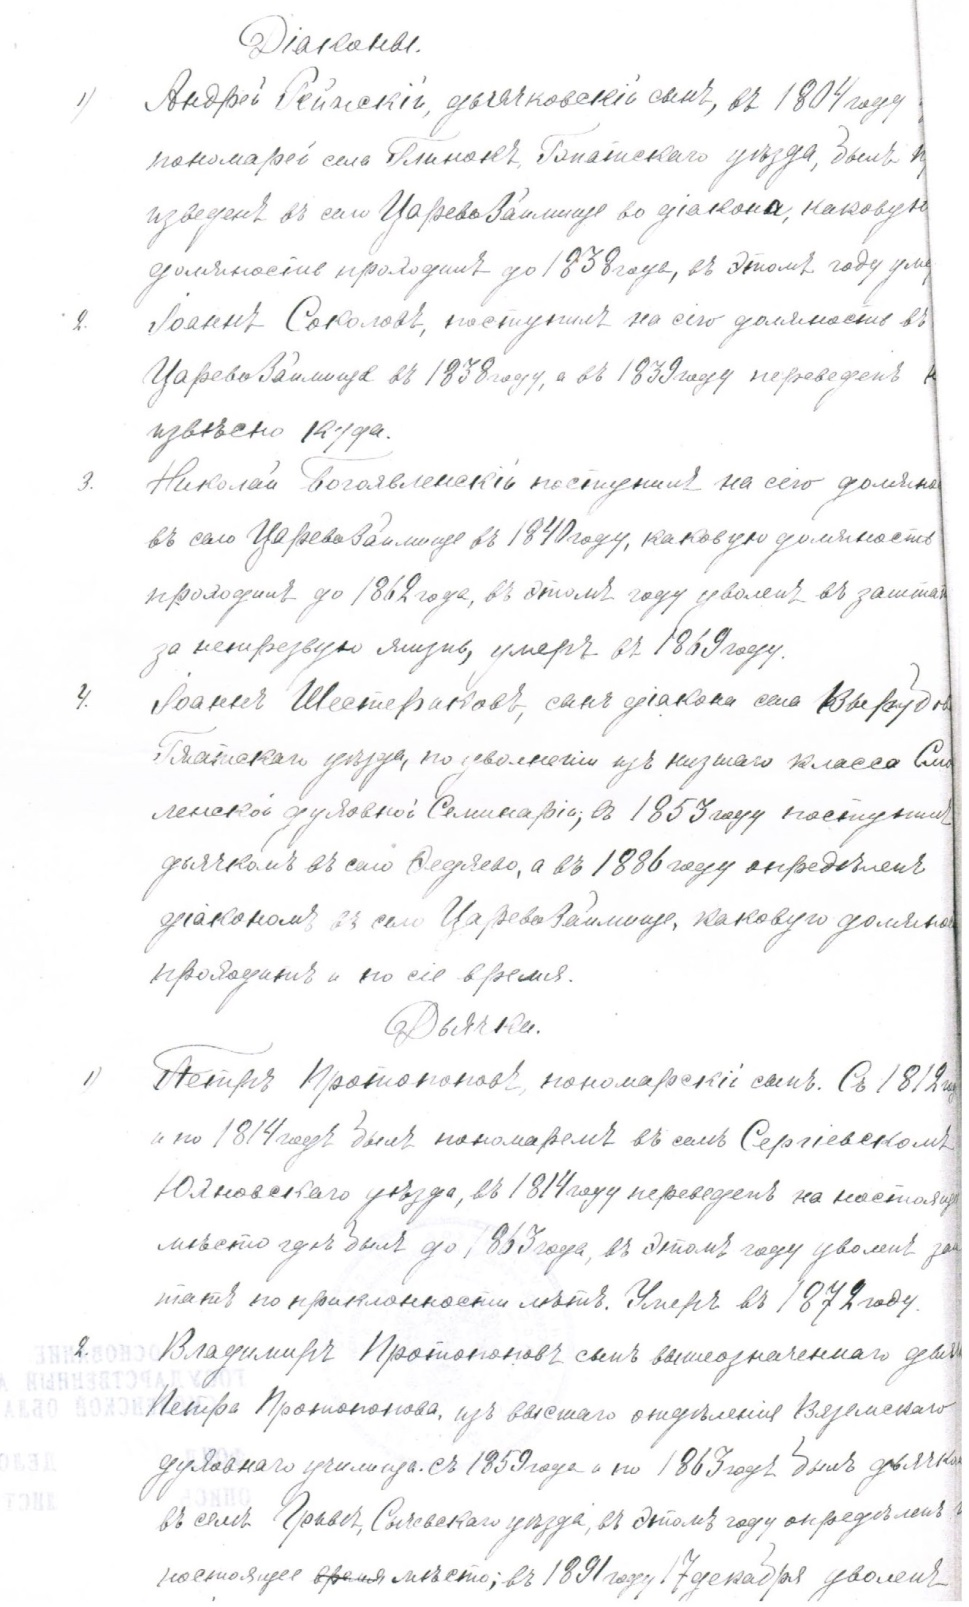 Діаконы.
1) Андрей Рейтскій, дьячковскій сынъ, въ 1804 году
пономарей села Глинокъ, Гжатскаго уѣзда, былъ
изведенъ въ село Царево Займище во діакона, каковую
должность проходилъ до 1838 года, въ этомъ году уме
2. Іоаннъ Соколовъ, поступилъ на сію должность въ
Царево Займище въ 1838 году, а въ 1839 году переведенъ н
извѣсно куда.
3. Николай Богоявленскій поступилъ на сію должно
въ село Царево Займище въ 1840 году, каковую должность
проходилъ до 1862 года, въ этомъ году уволенъ въ заштат
за нетрезвую жизнь, умеръ въ 1869 году.
4. Іоаннъ Шестериковъ, сынъ діакона села
Гжатскаго уѣзда, по уволненіи изъ низшаго класса Смо
ленской духовной Семинаріи; въ 1853 году поступилъ
дьячкомъ въ село Федяево, а въ 1886 году опредѣленъ
діакономъ въ село Царево Займище, каковую должно
проходитъ и по сіе время.
Дьячки.
1) Петръ Протопоповъ, пономарскій сынъ. Съ 1812 го
и по 1814 годъ былъ пономаремъ въ селѣ Сергіевскомъ
Юхновскаго уѣзда, въ 1814 году переведенъ на настояще
мѣсто гдѣ былъ до 1863 года, въ этомъ году уволенъ за
татъ по приклонности лѣтъ. Умеръ въ 1872 году.
2. Владимиръ Протопоповъ сынъ вышеозначеннаго дьяч
Петра Протопопова, изъ высшаго отдѣленія Вяземскаго
духовнаго училища. Съ 1859 года и по 1863 годъ былъ дьячко
въ селѣ Сычевскаго уѣзда, въ этомъ году опредѣленъ
настоящее время мѣсто; въ 1891 году 17 декабря уволенъ